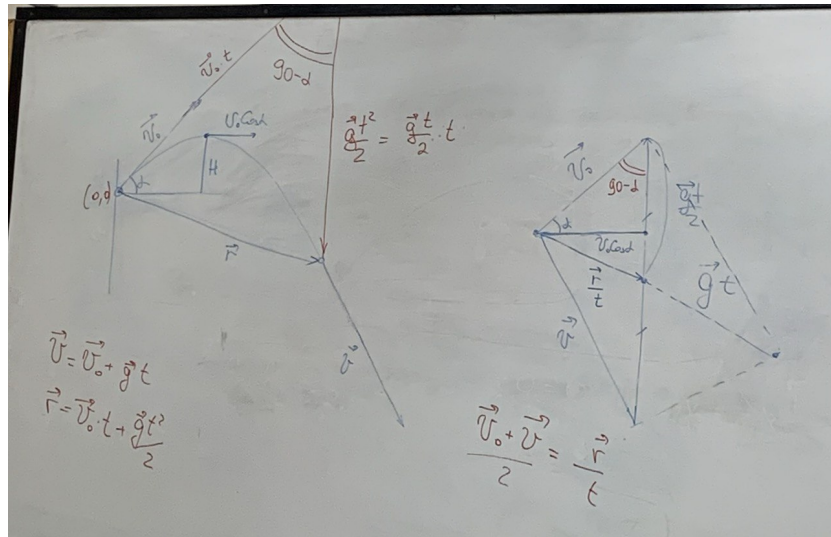 v⃗₀·t
90-α
v⃗₀
v₀cosα
g⃗t²/2 = g⃗t/2 · t
H
(0,0)
α
r⃗
v⃗
v⃗=v⃗₀+g⃗t
r⃗=v⃗₀·t+g⃗t²/2
v⃗₀
90-α
g⃗t/2
α
v₀cosα
r⃗/t
g⃗t
v⃗
v⃗₀+v⃗/2 = r⃗/t